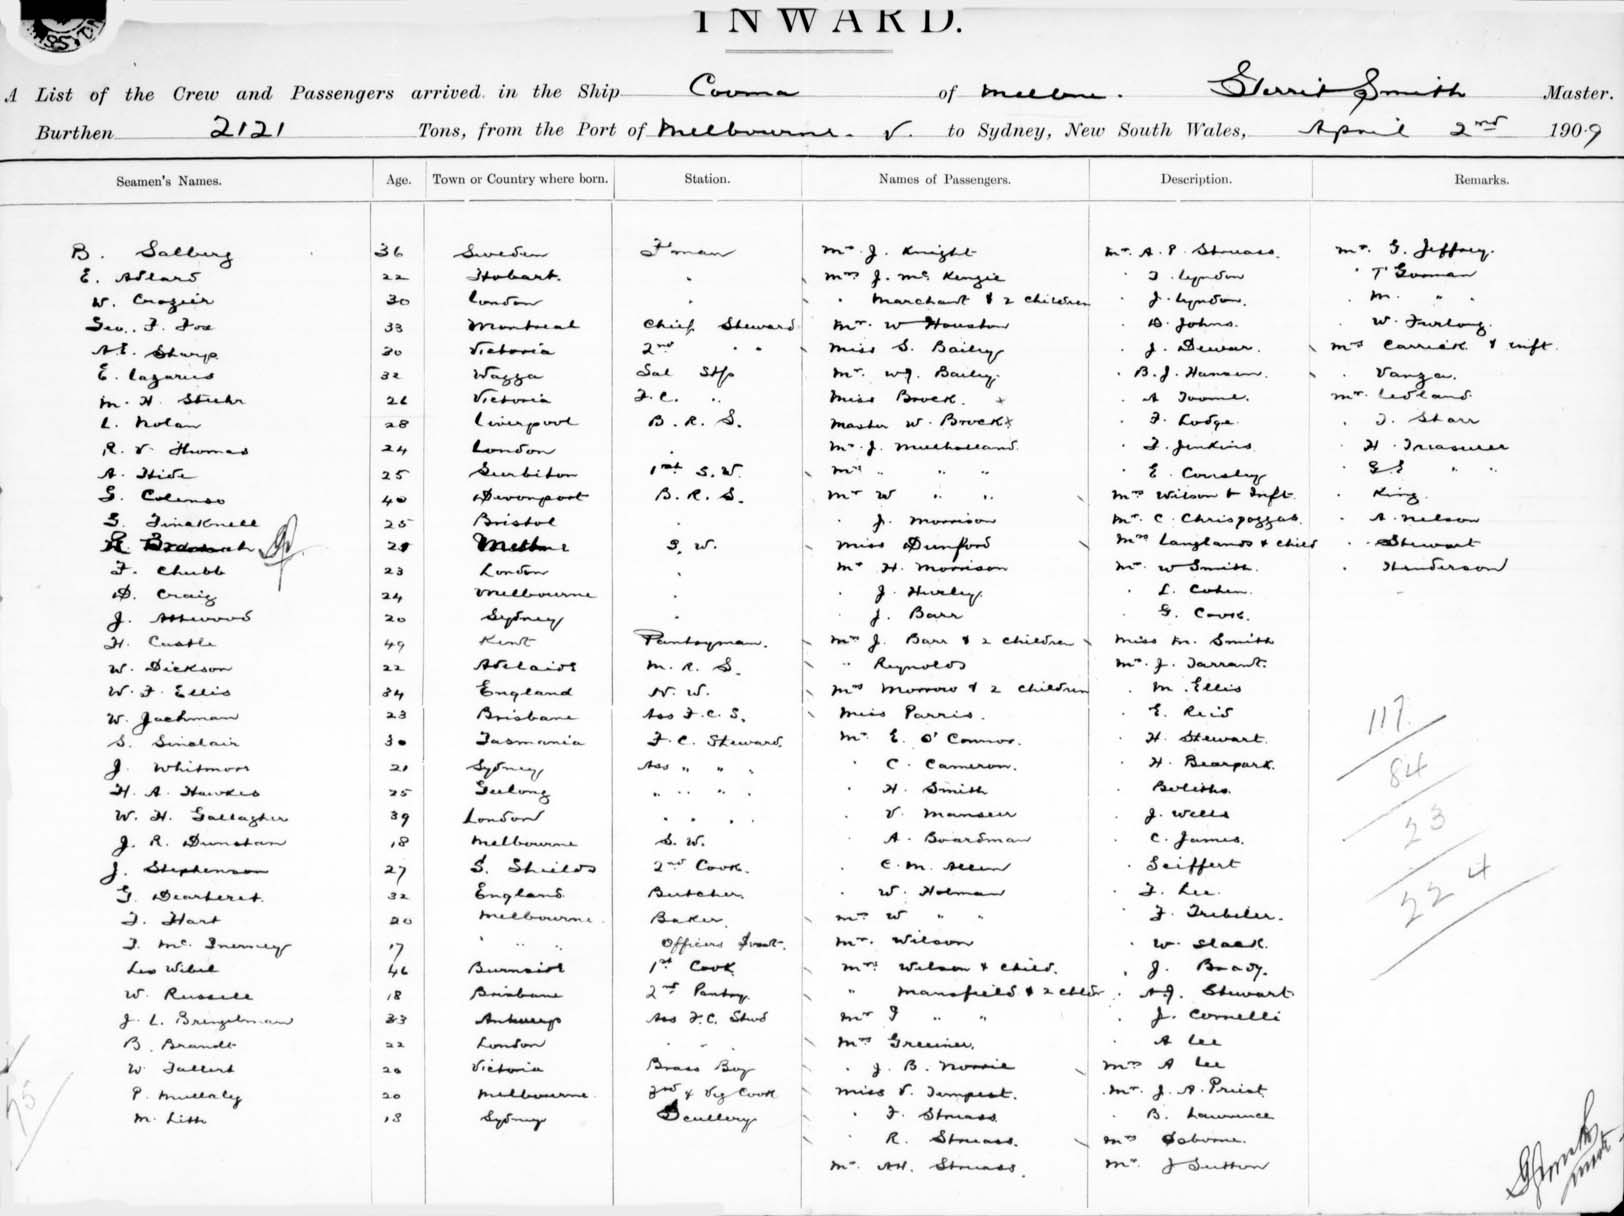 INWARD.
A List of the Crew and Passengers arrived in the Ship Cooma of Melbne. Gerrit Smith Master.
Burthen 2121 Tons, from the Port of Melbourne. V. to Sydney, New South Wales, April 2nd 1909
Seamen's Names. Age. Town or Country where born. Station. Names of Passengers. Description. Remarks.
B. Salberg 36 Sweden F'man Mr. J. Knight Mr. A. P. Strauss. Mr. G. Jeffrey.
E. Adlard 22 Hobart. " Mrs J. Mc Kenzie " T. Lyndon " T Gorman
W. Crozier 30 London " " Marchant & 2 children " J. Lyndon. " M. " "
Geo. F. Fox 33 Montreal Chief Steward Mr. W Houston " D. Johns. " W. Furlong.
A.E. Sharp 30 Victoria 2nd " " Miss S. Bailey " J. Dewar. Mrs Carrick & inft.
E. Lazarus 32 Wagga Sal Stp Mr. W.J. Bailey. " B. J. Hansen. " Vanga.
M. H. Stuehr 26 Victoria F.C. " Miss Brock. x " A Toome. Mr. Ledland.
L. Nolan 28 Liverpool B. R. S. Master W. Brock x " F. Lodge. " J. Starr
R. V. Thomas 24 London " Mr. J. Mulholland. " F. Jenkins " H. Treasurer
A. Hide 25 Surbiton 1st S.W. Mrs " " " " E. Consley " G.E " "
G. Colenso 40 Devonport B. R. S. Mr W " " Mrs Wilson & Inft. " King.
S. Finaknell 25 Bristol " " J. Morrison Mr. C. " A. Nelson
25 Melbne S. W. Miss Dunford Mrs Langlands & child " Stewart
F. Chubb 23 London " Mr H. Morrison Mr. W Smith. " Henderson
D. Craig 24 Melbourne " " J. Hurley. " L. Cohen.
J. Attwood 20 Sydney " " J. Barr " G. Cook.
H. Castle 49 Kent Pantryman. Mrs J. Barr & 2 children Miss M. Smith
W. Dickson 22 Adelaide M. R. S. " Reynolds Mr. J. Tarrant.
W. F. Ellis 34 England N. W. Mrs Morrow & 2 children " M. Ellis
W. Jackman 23 Brisbane Ass F. C. S. Miss Parris. " E. Reid
S. Sinclair 30 Tasmania F. C. Steward. Mr. E. O'Connor. " H. Stewart.
J. Whitmore 21 Sydney Ass " " " " C. Cameron. " H. Bearpark.
H. A. Hawkes 25 Geelong " " " " " H. Smith " Boliths.
W. H. Gallagher 39 London " " " " " V. Manseer " J. Wells
J. R. Dunstan 18 Melbourne S. W. " A. Boardman " C. James.
J. Stephenson 27 S. Shields 2nd Cook. " C. M. Allen " Seiffert
G. Dearberet. 32 England Butcher " W. Holman " F. Lee.
F. Hart 20 Melbourne. Baker. Mrs W " " " F. Trebeler.
F. Mc Inerney 17 " " " Officers Servt. Mr. Wilson " W. Slack.
Leo Wibel 46 Burnside 1st Cook Mrs Wilson & Child. " J. Brady.
W. Russell 18 Brisbane 2nd Pantry. " Mansfield & 2 chldr " A.J. Stewart.
J. L. Bringelman 33 Antwerp Ass F.C. Stwd Mr J " " " J. Cornelli
B. Brandt 22 London " " " Mrs Greiner. " A Lee
W Tallert 20 Victoria Brass Boy " J. B. Norrie Mrs A Lee
P. Mullaly 20 Melbourne. 3rd & Veg Cook Miss V. Tempest. Mr. J. A. Priest
M. Lith 18 Sydney Scullery " F. Strauss " B. Lawrence
" R. Strauss. Mrs Osborne.
Mr. AH. Strauss. Mr. J Sutton
117
84
23
224
75
G Smith
Mast